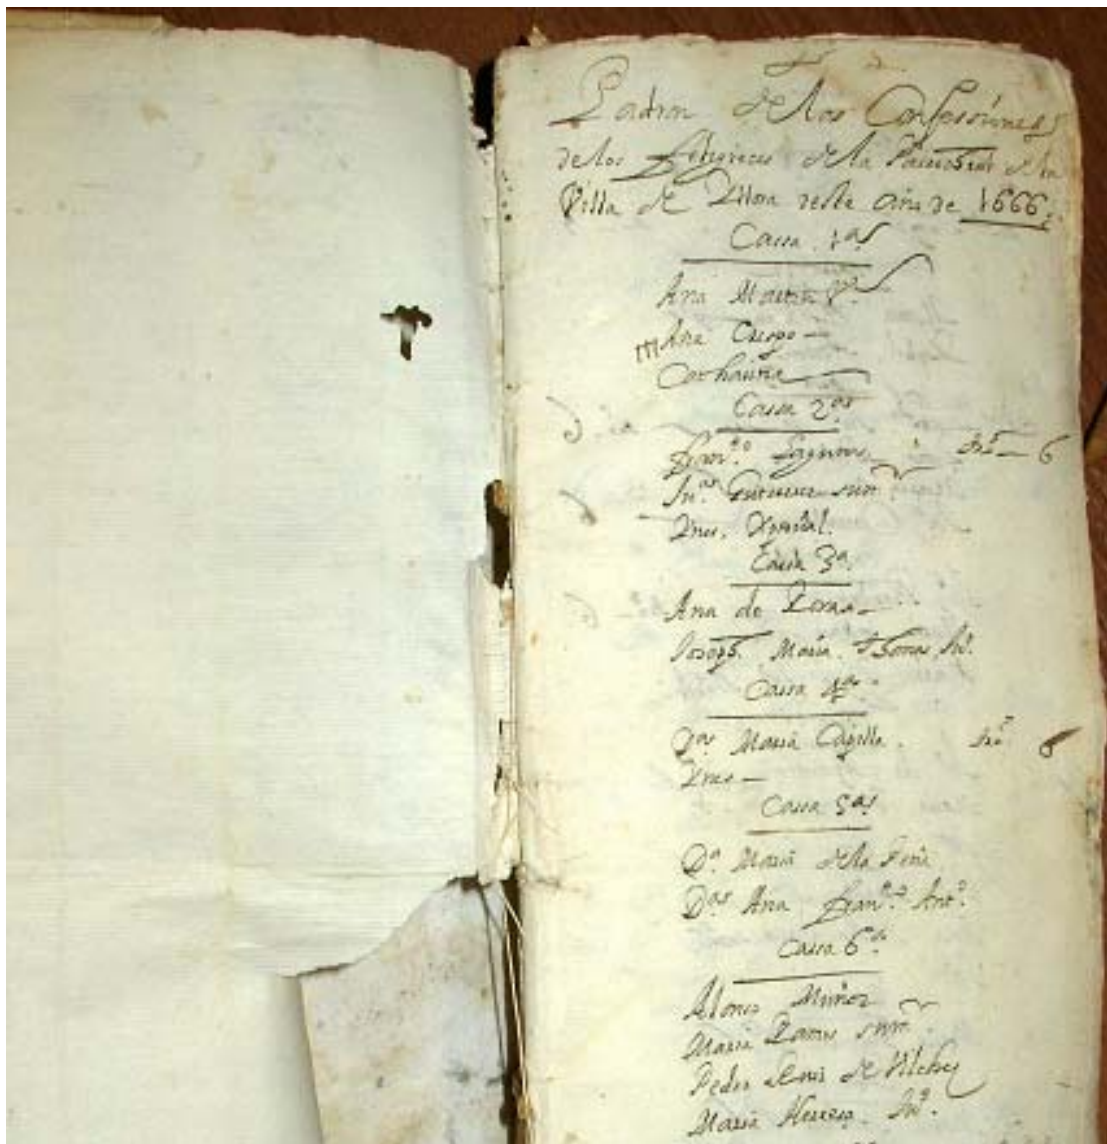 Padron de los Confessiones
de los feligreses de la Parrochial de la
Villa de Yllora deste Año de 1666
Cassa 1ª
Ana Martin
Ana Crespo
Catharina
Cassa 2ª
franco 6
su mr
Ynes. Xptoval.
Cassa 3ª
Ana de
Joseph. Maria. Thomas
Cassa 4ª
Dª Maria Capilla. 6
Ynes
Cassa 5ª
Dª Maria de la Peña
Dª Ana franca Anto
Cassa 6ª
Alonso Muñoz
Maria Ramos su mr
Pedro Ruis de Vilchez
Maria Herrera